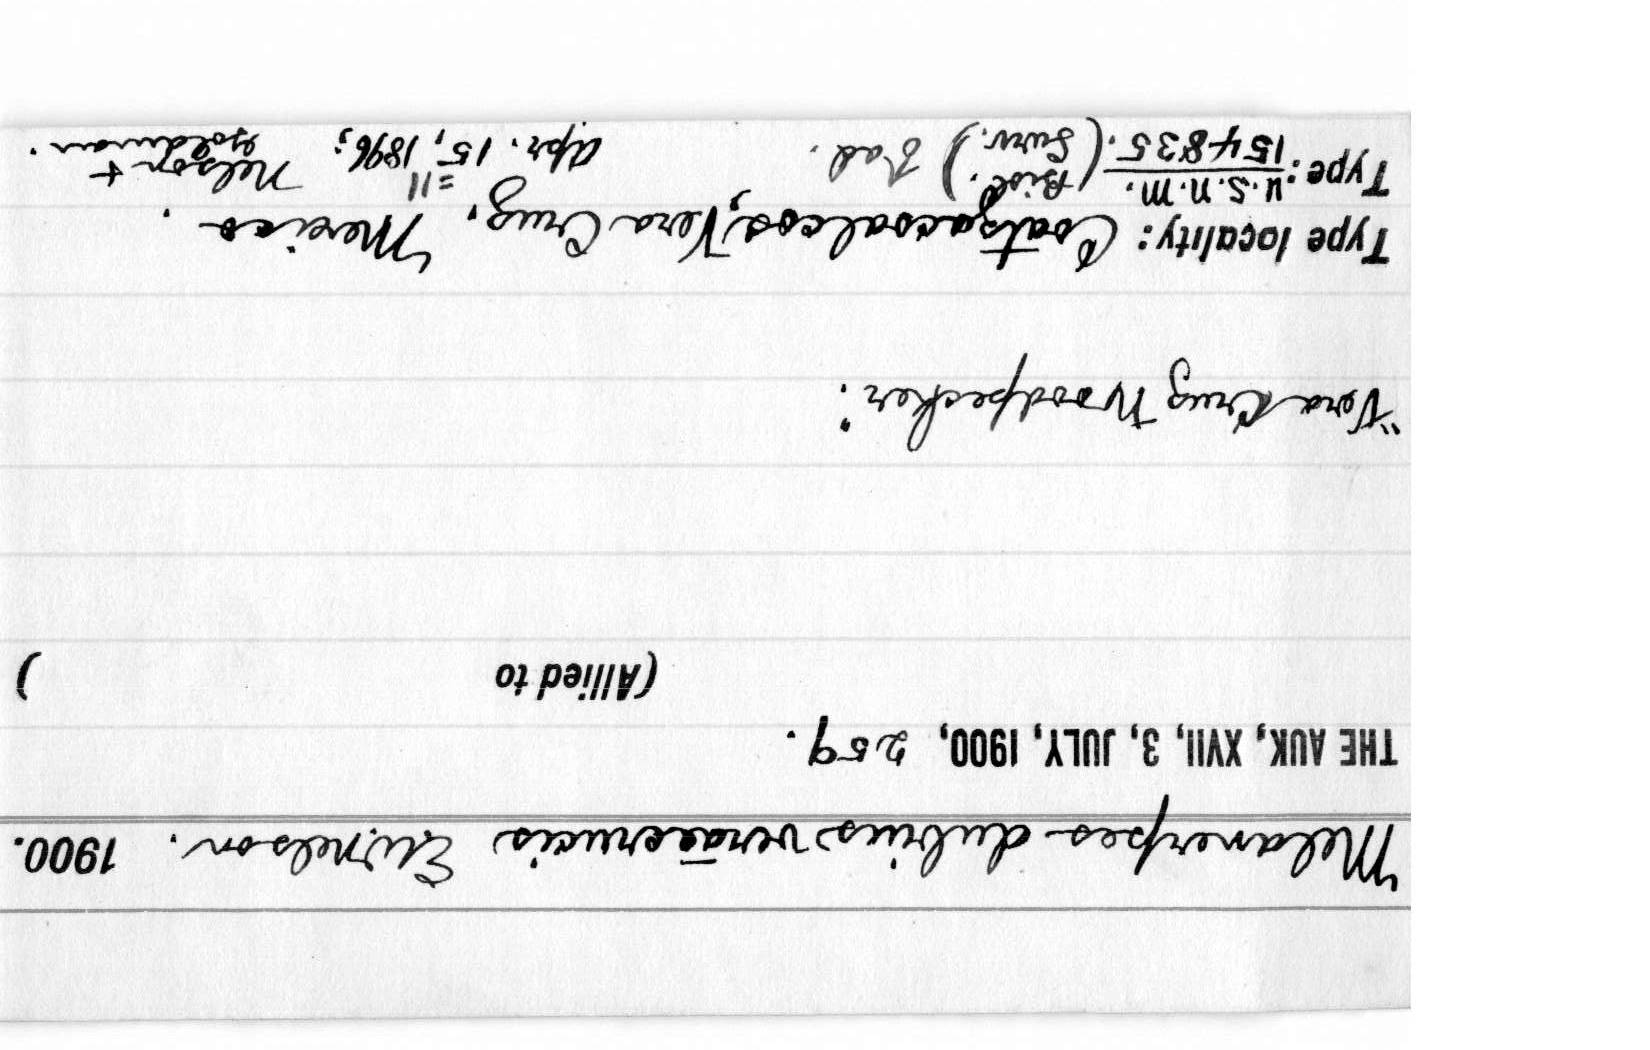 Melanerpes dubius veraecrucis E.W.Nelson. 1900.
THE AUK, XVII, 3, JULY, 1900, 259.
(Allied to )
"Vera Cruz Woodpecker".
Type locality: Coatzacoalcos, Vera Cruz, Mexico.
Type: U.S.N.M. 154835. (Biol. Surv.) ♂ ad. Apr. 15, =11 1896; Nelson + Goldman.